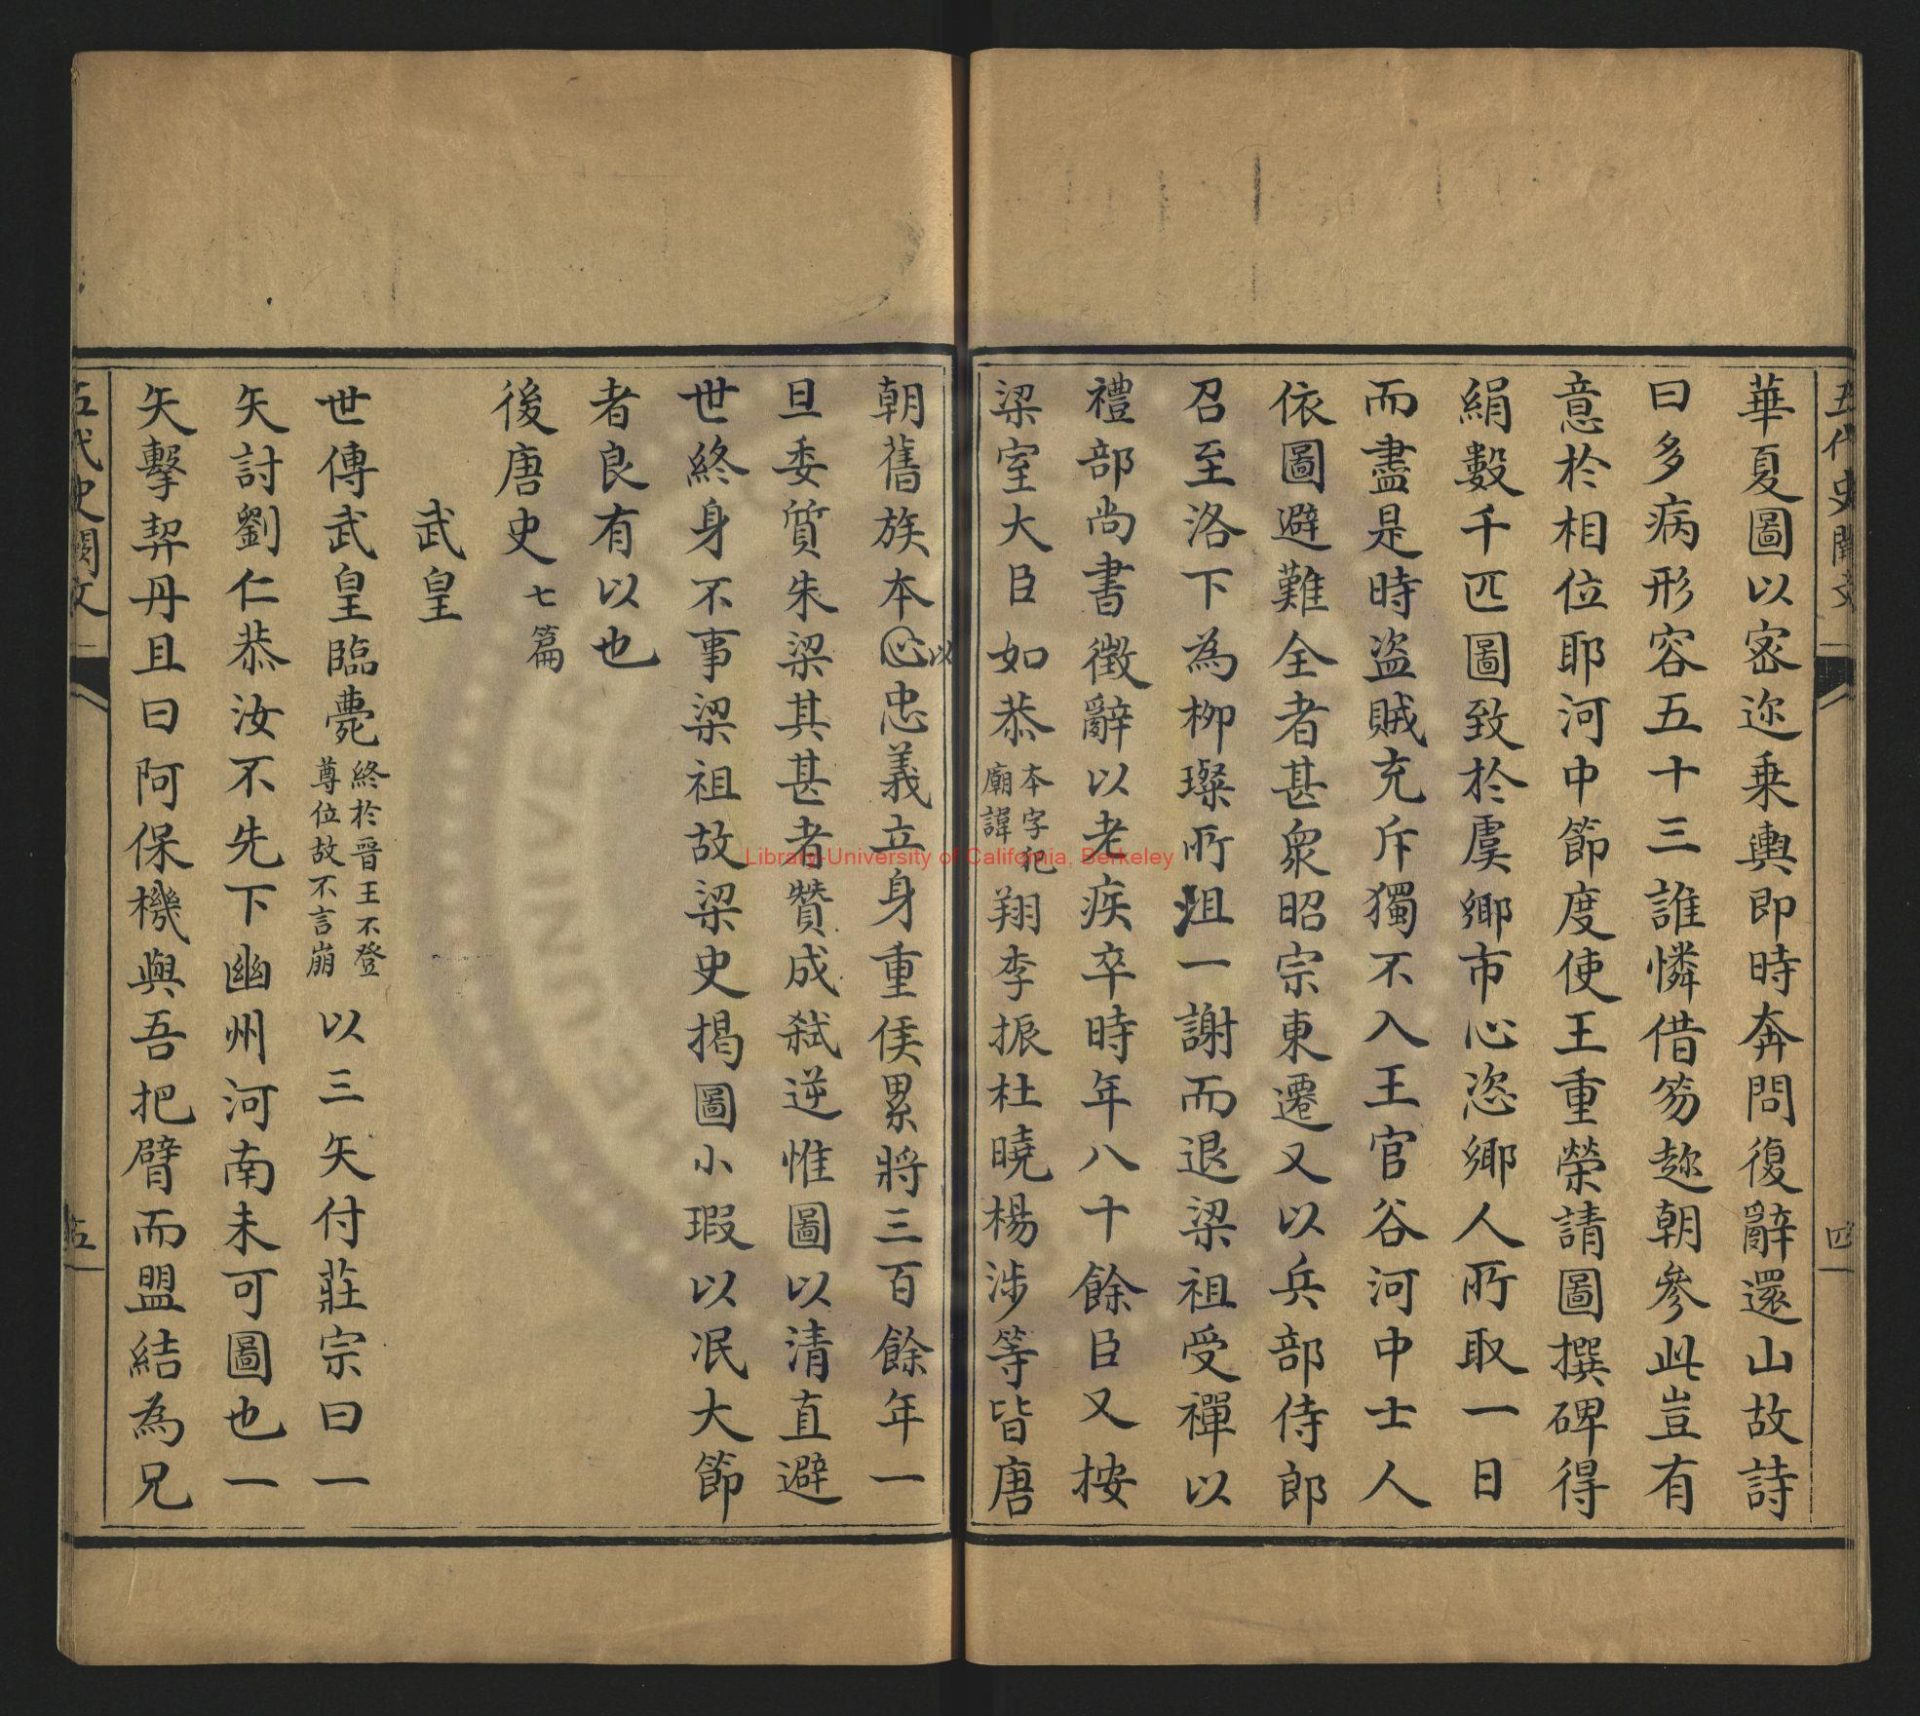 五代史闕文
四
華夏圖以密邇乗輿即時奔問復辭還山故詩
曰多病形容五十三誰憐借笏趂朝參此豈有
意於相位耶河中節度使王重榮請圖撰碑得
絹數千匹圖致於虞鄉市心恣鄉人所取一日
而盡是時盜賊充斥獨不入王官谷河中士人
依圖避難全者甚衆昭宗東遷又以兵部侍郎
召至洛下為柳璨所沮一謝而退梁祖受禪以
禮部尚書徵辭以老疾卒時年八十餘臣又按
梁室大臣如恭本字犯廟諱翔李振杜曉楊涉等皆唐
朝舊族本心忠義立身重侯累將三百餘年一
以
旦委質朱梁其甚者贊成弒逆惟圖以清直避
世終身不事梁祖故梁史揭圖小瑕以泯大節
者良有以也
後唐史七篇
武皇
世傳武皇臨薨終於晉王不登尊位故不言崩以三矢付莊宗曰一
矢討劉仁恭汝不先下幽州河南未可圖也一
矢擊契丹且曰阿保機與吾把臂而盟結為兄
五代史闕文
五
Library-University of California, Berkeley